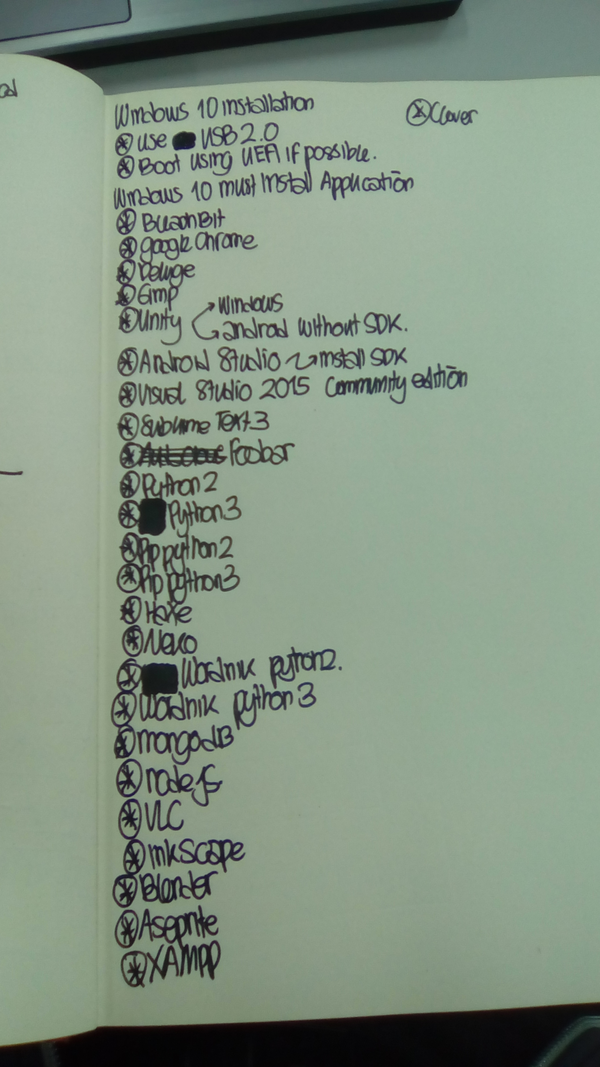 Windows 10 installation
use USB 2.0
Boot using UEFI if possible.
Windows 10 must install Application
BleachBit
google Chrome
Deluge
Gimp
Unity
Windows
android without SDK.
Android Studio install SDK
Visual Studio 2015 Community edition
Sublime Text 3
Foobar
Python 2
Python 3
Pip python 2
Pip python 3
Haxe
Neko
Wordnik python2.
Wordnik python 3
mongodB
node.js
VLC
inkscape
Blender
Aseprite
XAMPP
Clover